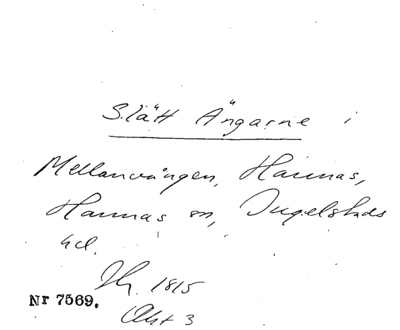 Slätt Ängarne i
Mellanvången, Hannas,
Hannas sn, Ingelstads
hd.
1815
Nr 7569.
Akt 3